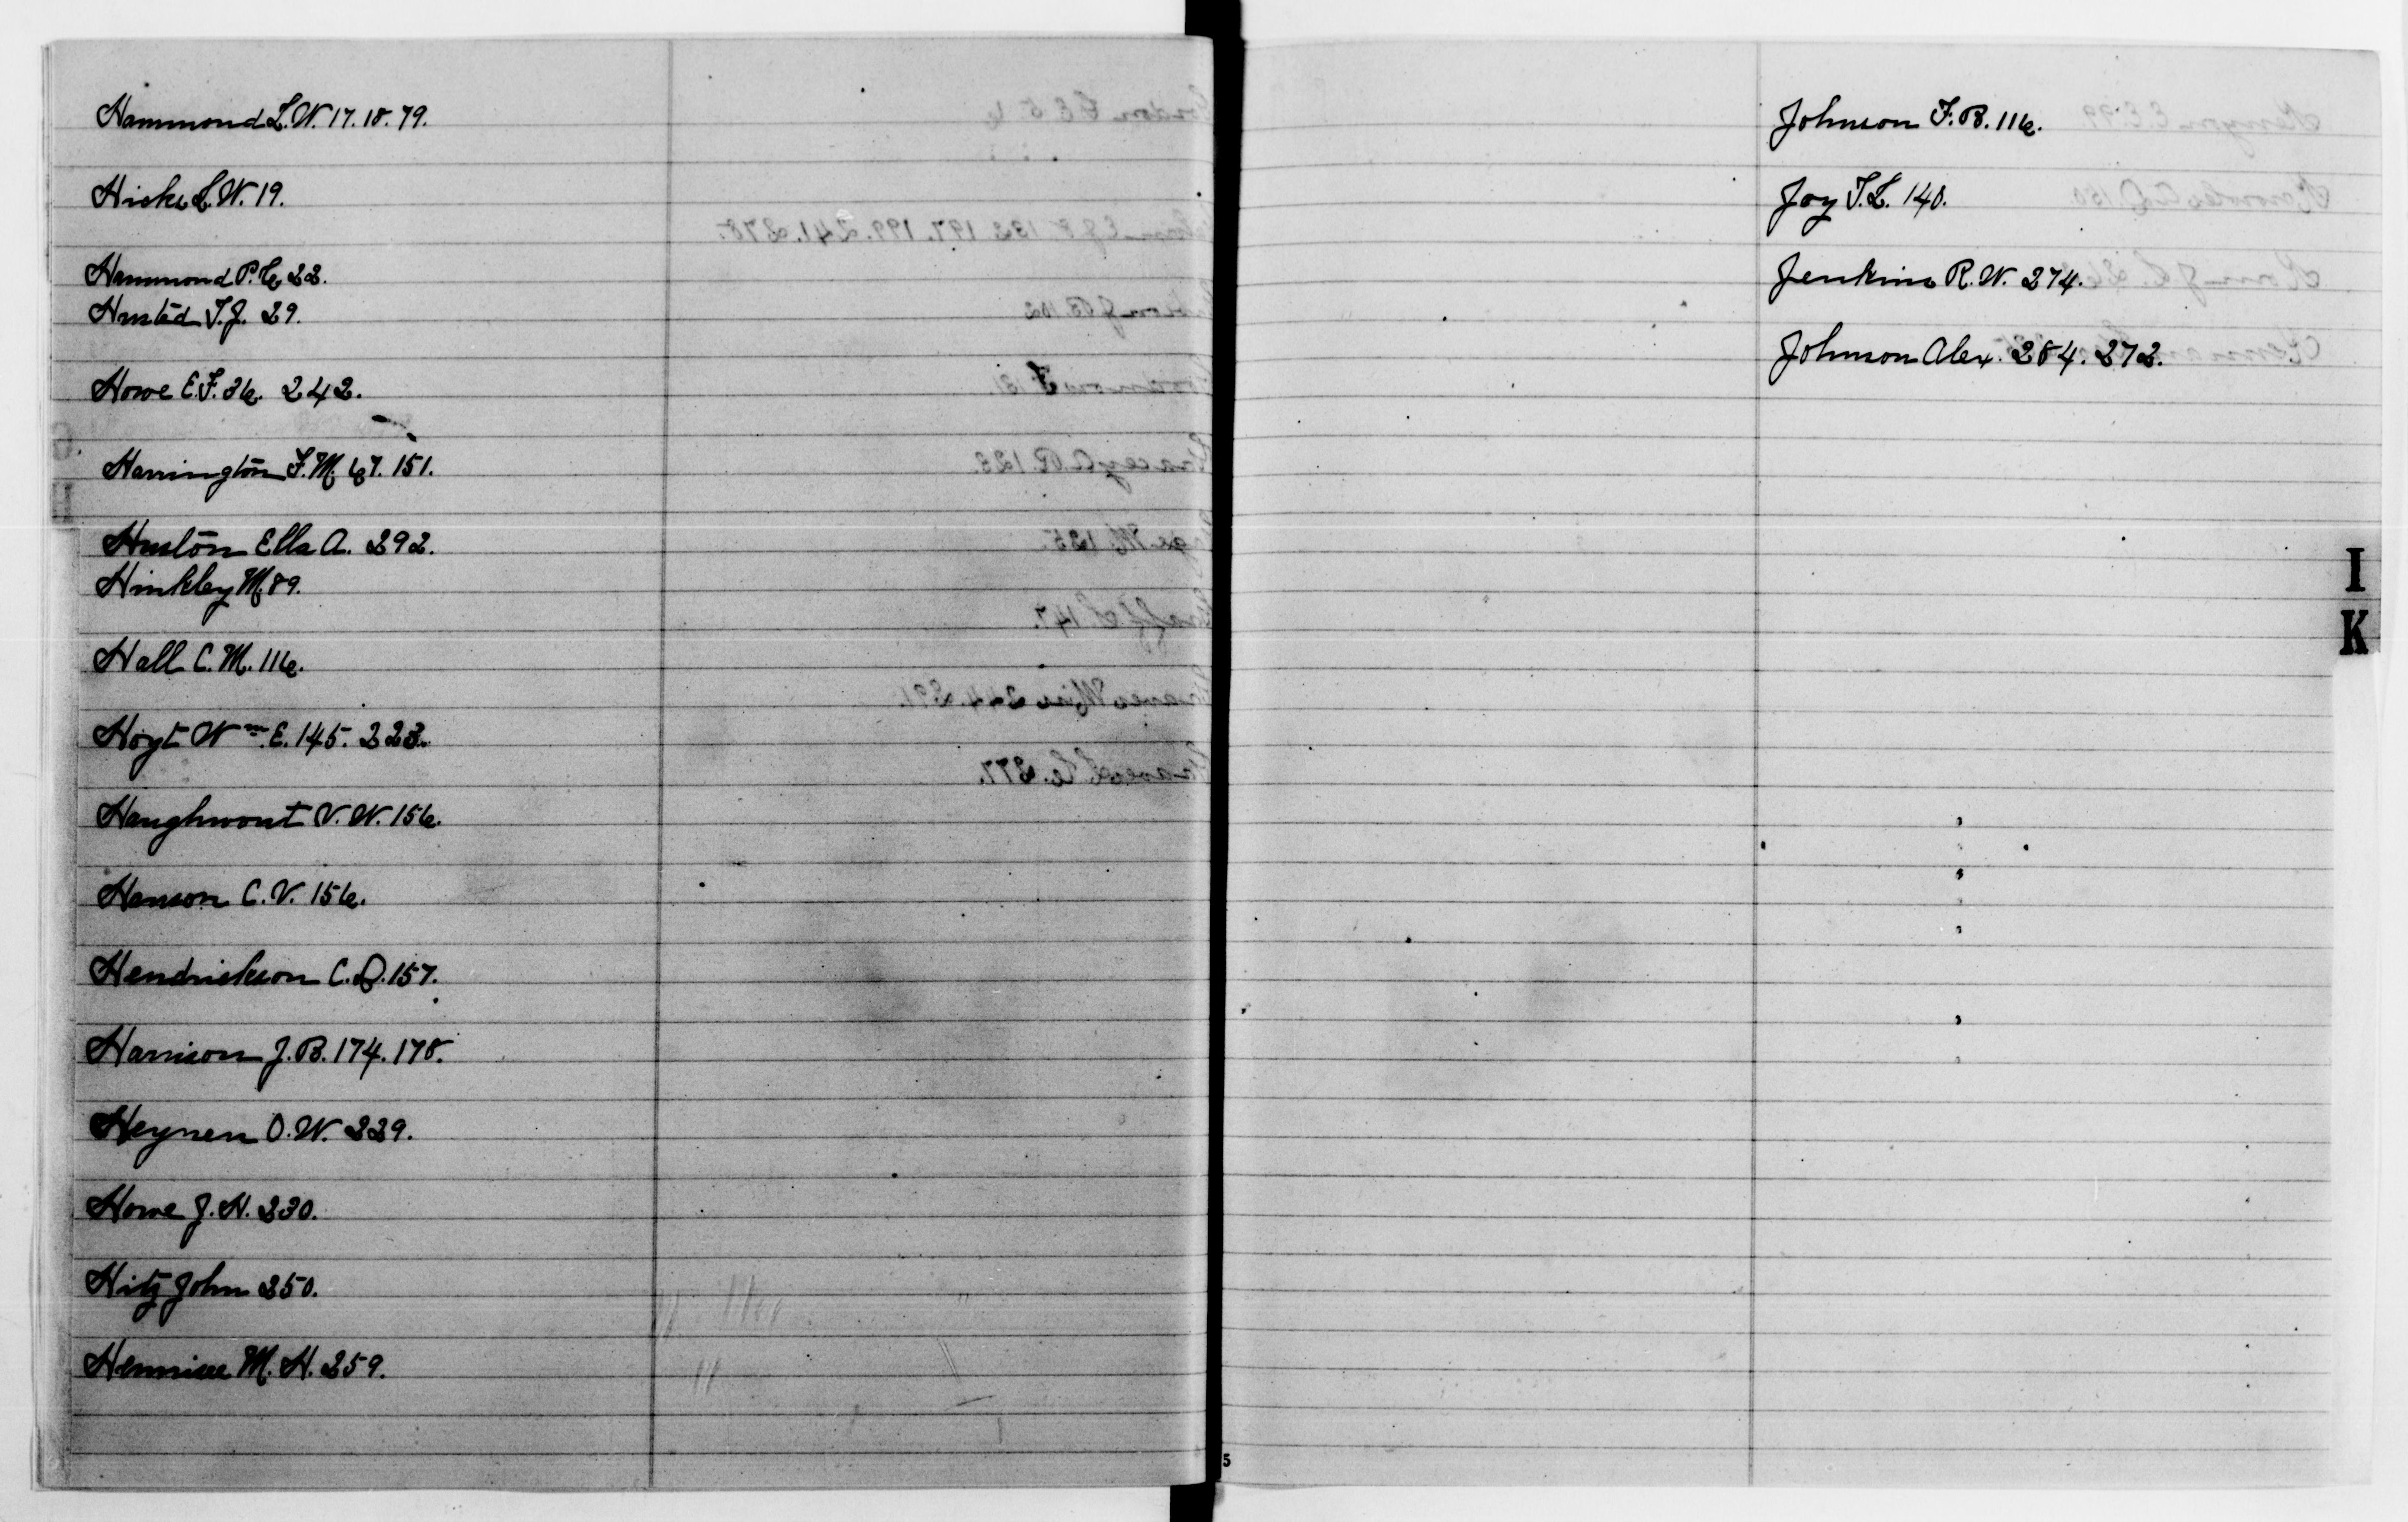 Hammond L.W. 17. 18. 79.
Hicks L.W. 19.
Hammond P.C. 22.
Husted T.J. 29.
Howe E.F. 36. 242.
Harrington F.M. 67. 151.
Huston Ella A. 292.
Hinkley M. 89.
Hall C.M. 116.
Hoyt Wm. E. 145. 223.
Haughwout V.W. 156.
Hanson C.V. 156.
Hendrickson C.D. 157.
Harrison J.B. 174. 178.
Heynen O.W. 229.
Howe J.H. 230.
Hitz John 250.
M.H. 259.
Johnson F.B. 116.
Joy T.L. 140.
Jenkins R.W. 274.
Johnson Alex. 284. 272.
I
K
5